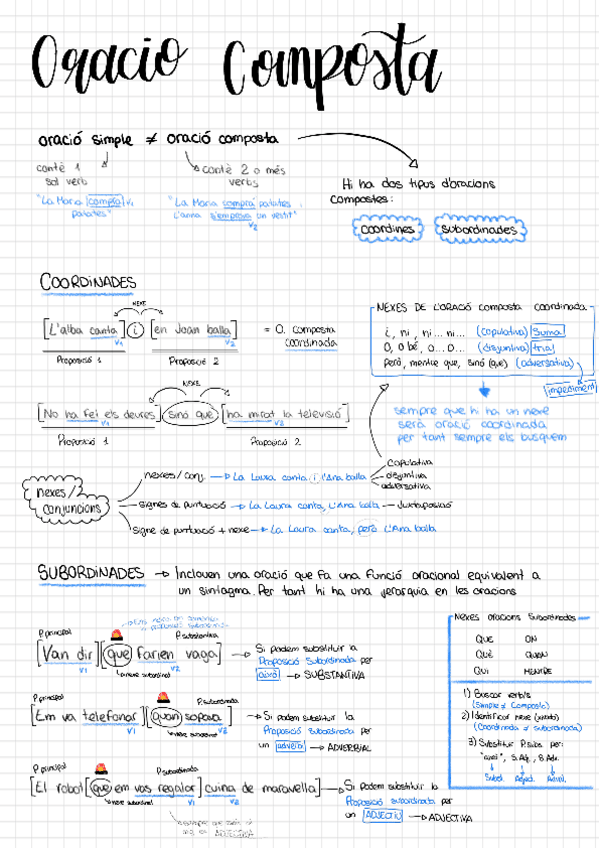 Oració Composta
oració simple ≠ oració composta
conté 1
sol verb
"La Maria compra V1
patates"
conté 2 o més
verbs
"La Maria compra patates i
L'anna s'emprova un vestit"
V2
Hi ha dos tipus d'oracions
compostes:
coordines
subordinades
COORDINADES
NEXE
[L'alba canta] i [en Joan balla]
V1
V2
Proposició 1
Proposició 2
= O. composta
coordinada
NEXE
[No ha fei els deures] sinó que [ha mirat la televisió]
V1
V2
Proposició 1
Proposició 2
NEXES DE L'ORACIÓ composta coordinada
i, ni, ni... ni... (copulativa) Suma
O, o bé, o...o... (disjuntiva) tria
Però, mentre que, sinó (que) (adversativa)
impediment
sempre que hi ha un nexe
serà oració coordinada
per tant sempre els busquem
nexes/2
conjuncions
nexes/conj. → La Laura canta i l'Ana balla
copulativa
disjuntiva
adversativa
signes de puntuació → La Laura canta, l'Ana balla — Juxtaposició
signe de puntuació + nexe → La Laura canta, però l'Ana balla
SUBORDINADES → Inclouen una oració que fa una funció oracional equivalent a
un sintagma. Per tant hi ha una jerarquia en les oracions
P. principal
P. substantiva
[Van dir] [que farien vaga]
V1
V2
nexe subordinat
→ Si podem substituir la
Proposició Subordinada per
això → SUBSTANTIVA
P. principal
P. subordinada
[Em va telefonar] [quan sopava]
V1
V2
nexe subordinat
→ Si podem substituir la
Proposició Subordinada per
un adverbi → ADVERBIAL
P. principal
P. subordinada
[El robot [que em vas regalar] cuina de maravella]
nexe subordinat
V1
V2
→ Si Podem substituir la
Proposició subordinada per
un ADJECTIU → ADJECTIVA
Nexes oracions Subordinades
QUE ON
QUÈ QUAN
QUI MENTRE
1) Buscar verbs
(Simple ≠ Composta)
2) Identificar nexe
(Coordinada ≠ subordinada)
3) Substituir P.subs. per:
"això", S. Adj., S. Adv.
Subst. Adject. Advel.